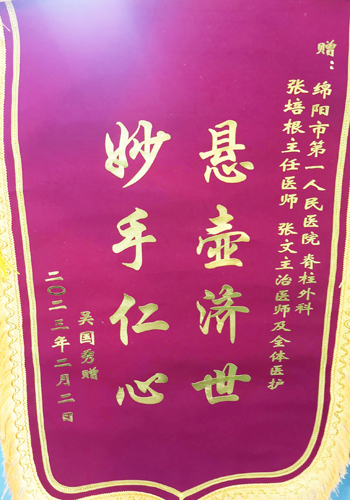 赠：绵阳市第一人民医院脊柱外科
张培根主任医师 张文主治医师及全体医护
悬壶济世
妙手仁心
吴国秀赠
二〇二三年二月二日